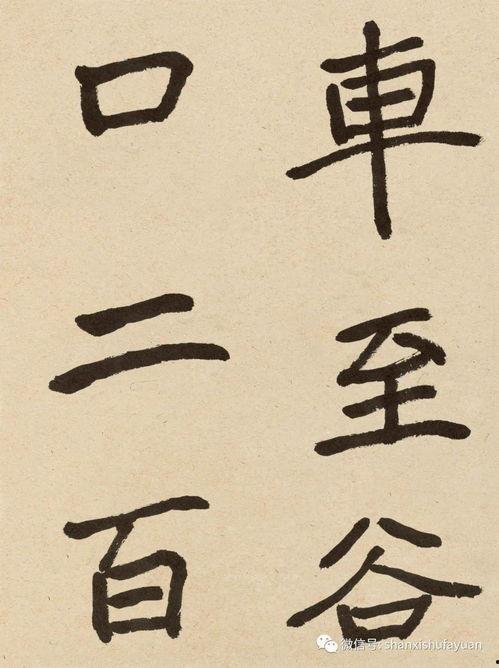 車至谷
口二百
微信号: shanxishufayuan